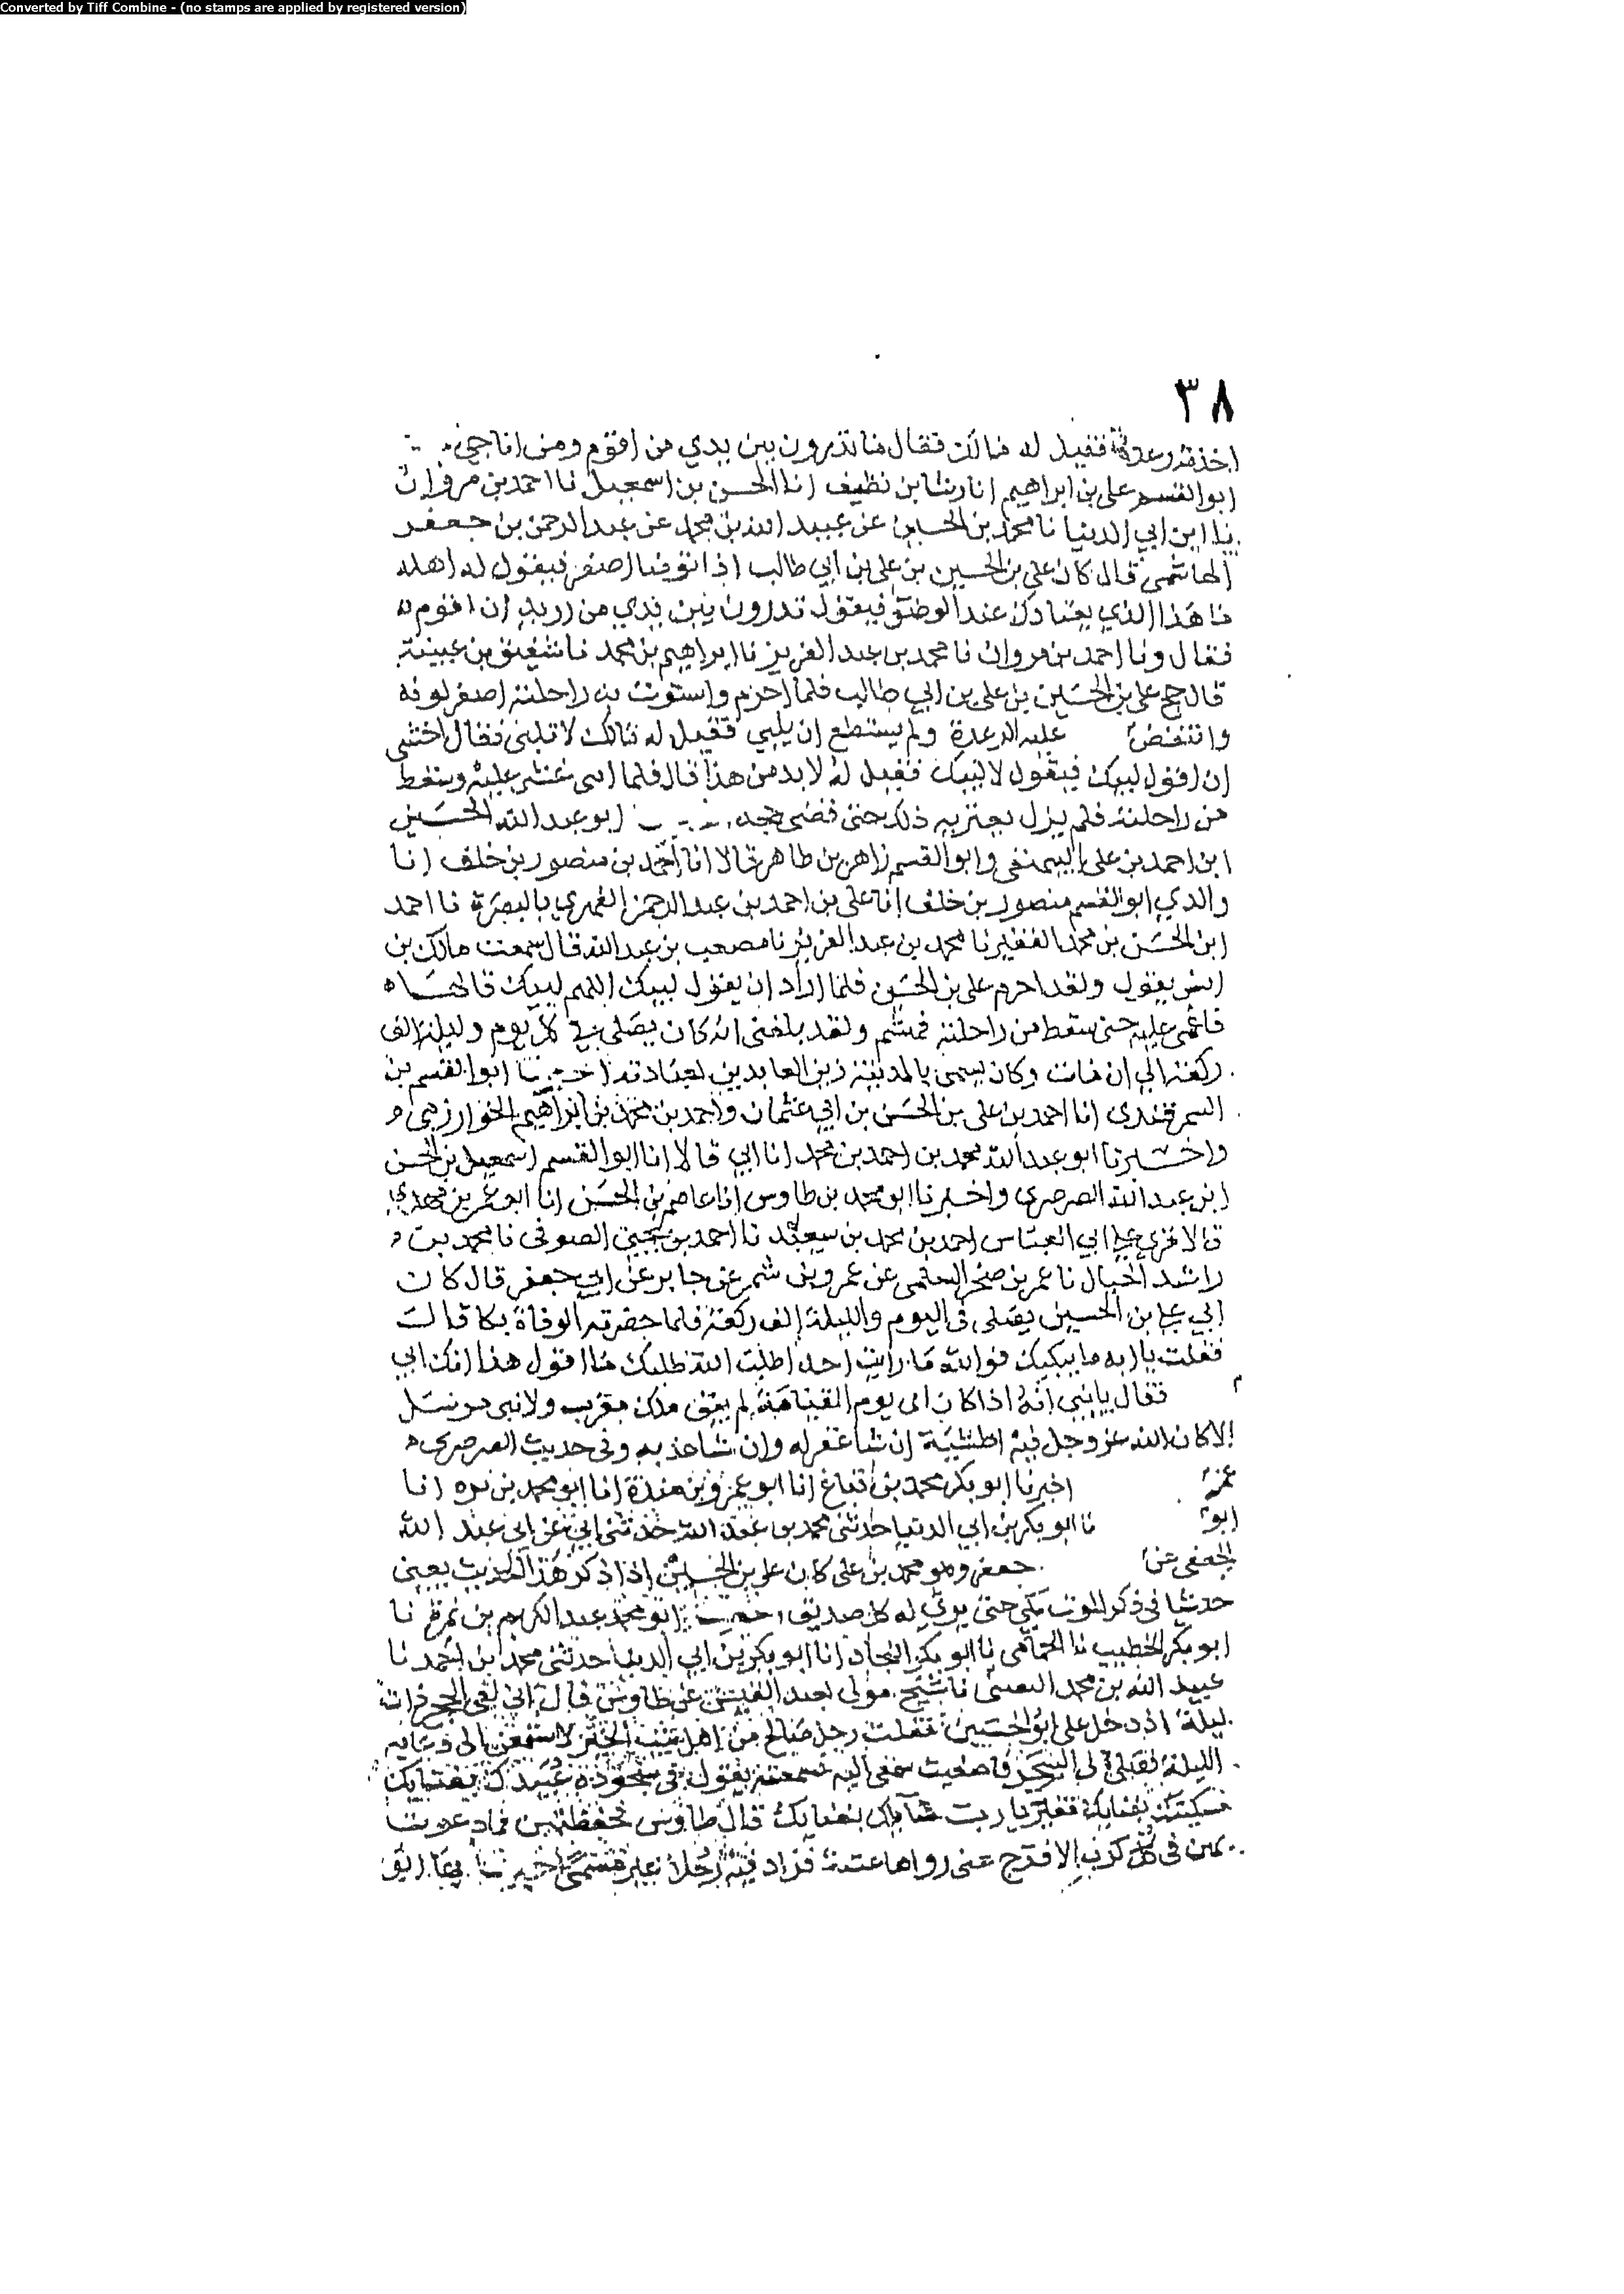 Converted by Tiff Combine - (no stamps are applied by registered version)
٣٨
اخذته رعدة فقيل له مالك فقال ما تدرون بين يدي من اقوم ومن اناجي
ابو القسم علي بن ابراهيم انا رشا بن نظيف انا الحسن بن اسمعيل نا احمد بن مروان
نا ابن ابي الدنيا نا محمد بن الحسين عن عبيد الله بن محمد عن عبد الرحمن بن جعفر
الهاشمي قال كان علي بن الحسين بن علي بن ابي طالب اذا توضا اصفر فيقول له اهله
ما هذا الذي يعتادك عند الوضو فيقول تدرون بين يدي من اريد ان اقوم
فقال ونا احمد بن مروان نا محمد بن عبد العزيز نا ابراهيم بن محمد نا سفين بن عيينة
قال حج علي بن الحسين بن علي بن ابي طالب فلما احرم واستوت به راحلته اصفر لونه
وانتفض عليه الرعدة ولم يستطع ان يلبي فقيل له مالك لا تلبي فقال اخشى
ان اقول لبيك فيقول لا لبيك فقيل له لا بد من هذا قال فلما لبى غشي عليه وسقط
من راحلته فلم يزل يعتريه ذلك حتى قضى حجه ابو عبد الله الحسين
ابن احمد بن علي البيهقي وابو القسم زاهر بن طاهر قالا انا احمد بن منصور بن خلف انا
والدي ابو القسم منصور بن خلف انا علي بن احمد بن عبد الرحمن الفهري بالبصرة نا احمد
ابن الحسن بن محمد الفقير نا محمد بن عبد العزيز نا مصعب بن عبد الله قال سمعت مالك بن
انس يقول ولقد احرم علي بن الحسين فلما اراد ان يقول لبيك اللهم لبيك قالها
فاغمي عليه حتى سقط من راحلته فهشم ولقد بلغني انه كان يصلي في كل يوم وليلة الف
ركعة الى ان مات وكان يسمى بالمدينة زين العابدين لعبادته اخبرنا ابو القسم بن
السمرقندي انا احمد بن علي بن الحسن بن ابي عثمان واحمد بن محمد بن ابراهيم الخوارزمي
واخبرنا ابو عبد الله محمد بن احمد بن محمد انا ابي قالا انا ابو القسم اسمعيل بن الحسن
ابن عبد الله الصرصري واخبرنا ابو محمد بن طاوس انا عاصم بن الحسن انا ابو عمر بن مهدي
قالا قري على ابي العباس احمد بن محمد بن سعيد نا احمد بن يحيى الصوفي نا محمد بن
راشد الحبال نا عمر بن صخر السلمي عن عمرو بن شمر عن جابر عن ابي جعفر قال كان
ابي علي بن الحسين يصلي في اليوم والليلة الف ركعة فلما حضرته الوفاة بكا قالت
فقلت يا ابه ما يبكيك فوالله ما رايت احدا طلب الله طلبك ما اقول هذا انك ابي
فقال يا بني انه اذا كان يوم القيامة لم يبق ملك مقرب ولا نبي مرسل
الا كان لله عز وجل فيه المشية ان شا غفر له وان شا عذبه وفي حديث الصرصري
عمر اخبرنا ابو بكر محمد بن انا ابو عمرو بن مندة انا ابو محمد بن يوه انا
ابو نا ابو بكر بن ابي الدنيا حدثني محمد بن حدثني ابي عن ابي عبد الله
الجعفي عن جعفر وهو محمد بن علي كان علي بن الحسين اذا ذكر هذا الحديث يعني
حديثا في ذكر الموت بكى حتى يرق له كل صديق ابو محمد عبد الكريم بن حمزة نا
ابو بكر الخطيب نا الحمامي نا ابو بكر النجاد انا ابو بكر بن ابي الدنيا حدثني محمد بن احمد نا
عبيد الله بن محمد التيمي نا شيخ مولى لعبد القيس عن طاوس قال اني لفي الحجر ذات
ليلة اذ دخل علي بن الحسين فقلت رجل صالح من اهل بيت الخير لاستمعن الى دعايه
الليلة فصلى الى السحر فاصغيت سمعي اليه فسمعته يقول في سجوده عبيدك بفنايك
مسكينك بفنايك فقير يا رب سايلك بفنايك قال طاوس فحفظتهن فما دعوت
بهن في كل كرب الا فرج عني رواها فزاد فيه رجلا غير مسمى اخبرنا بها